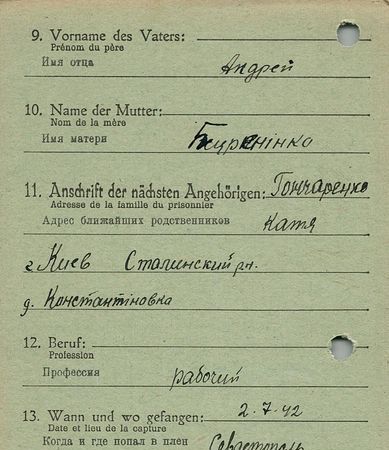 9. Vorname des Vaters:
Prénom du père
Имя отца
Андрей
10. Name der Mutter:
Nom de la mère
Имя матери
11. Anschrift der nächsten Angehörigen: Гончаренко
Adresse de la famille du prisonnier
Адрес ближайших родственников Катя
г. Киев Сталинский рн.
д. Константіновка
12. Beruf:
Profession
Профессия
рабочий
13. Wann und wo gefangen: 2.7.42
Date et lieu de la capture
Когда и где попал в плен Севастополь